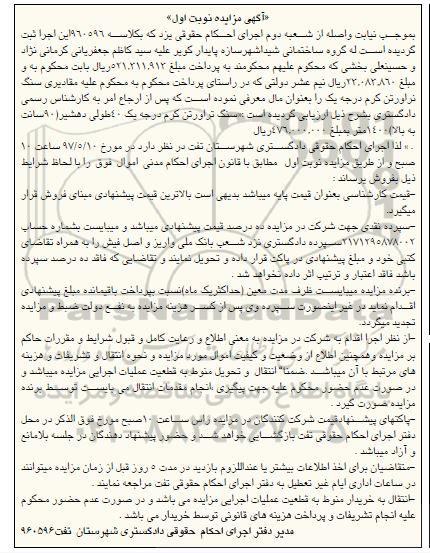 «آگهی مزایده نوبت اول»
بموجب نیابت واصله از شعبه دوم اجرای احکام حقوقی یزد که بکلاسه ۹۶۰۵۹۶این اجرا ثبت
گردیده است له گروه ساختمانی شیداشهرسازه پایدار کویر علیه سید کاظم جعفریانی کرمانی نژاد
و حسینعلی بخشی که محکوم علیهم محکومند به پرداخت مبلغ ۵۲۱.۳۱۱.۹۱۳ریال بابت محکوم به و
مبلغ ۲۳.۰۸۳.۸۶۰ریال نیم عشر دولتی که در راستای پرداخت محکوم به محکوم علیه مقادیری سنگ
تراورتن کرم درجه یک را بعنوان مال معرفی نموده است که پس از ارجاع امر به کارشناس رسمی
دادگستری بشرح ذیل ارزیابی گردیده است »سنگ تراورتن کرم درجه یک ۴۰طولی دهشیر(۹۰سانت
به بالا)۱۴۰۰متر بمبلغ ۴۷۶.۰۰۰.۰۰۰ریال
. » لذا اجرای احکام حقوقی دادگستری شهرستان تفت در نظر دارد در مورخ ۹۷/۵/۱۰ ساعت ۱۰
صبح و از طریق مزایده نوبت اول مطابق با قانون اجرای احکام مدنی اموال فوق را با لحاظ شرایط
ذیل بفروش برساند :
-قیمت کارشناسی بعنوان قیمت پایه میباشد بدیهی است بالاترین قیمت پیشنهادی مبنای فروش قرار
میگیرد.
-سپرده نقدی جهت شرکت در مزایده ده درصد قیمت پیشنهادی میباشد و میبایست بشماره حساب
۲۱۷۱۲۹۵۸۷۸۰۰۲سپرده دادگستری نزد شعب بانک ملی واریز و اصل فیش را به همراه تقاضای
کتبی خود و مبلغ پیشنهادی در پاکت قرار داده و تحویل نمایند و تقاضایی که فاقد ده درصد سپرده
باشد فاقد اعتبار و ترتیب اثر داده نخواهد شد .
-برنده مزایده میبایست ظرف مدت معین (حداکثریک ماه)نسبت بپرداخت باقیمانده مبلغ پیشنهادی
اقدام نماید در غیر اینصورت سپرده وی پس از کسر هزینه مزایده به نفع دولت ضبط و مزایده
تجدید میگردد.
-از نظر اجرا اقدام به شرکت در مزایده به معنی اطلاع و رعایت کامل و قبول شرایط و مقررات حاکم
بر مزایده وهمچنین اطلاع از وضعیت و کیفیت اموال مورد مزایده و نحوه انتقال و تشریفات و هزینه
های مرتبط با آن میباشد .ضمنا" انتقال و تحویل منوط به قطعیت عملیات اجرایی مزایده میباشد و
در صورت عدم حضور محکوم علیه جهت پیگیری ،انجام مقدمات انتقال می بایست توسط برنده
مزایده صورت گیرد .
-پاکتهای پیشنهادقیمت شرکت کنندگان در مزایده راس ساعت ۱۰صبح مورخ فوق الذکر در محل
دفتر اجرای احکام حقوقی تفت بازگشایی خواهد شد و حضور پیشنهاد دهندگان در جلسه بلامانع
و آزاد میباشد .
-متقاضیان برای اخذ اطلاعات بیشتر یا عنداللزوم بازدید در مدت ۵ روز قبل از زمان مزایده میتوانند
در ساعات اداری ایام غیر تعطیل به دفتر اجرای احکام حقوقی تفت مراجعه نمایند .
-انتقال به خریدار منوط به قطعیت عملیات اجرایی مزایده می باشد و در صورت عدم حضور محکوم
علیه انجام تشریفات و پرداخت هزینه های قانونی توسط خریدار می باشد .
مدیر دفتر اجرای احکام حقوقی دادگستری شهرستان تفت۹۶۰۵۹۶